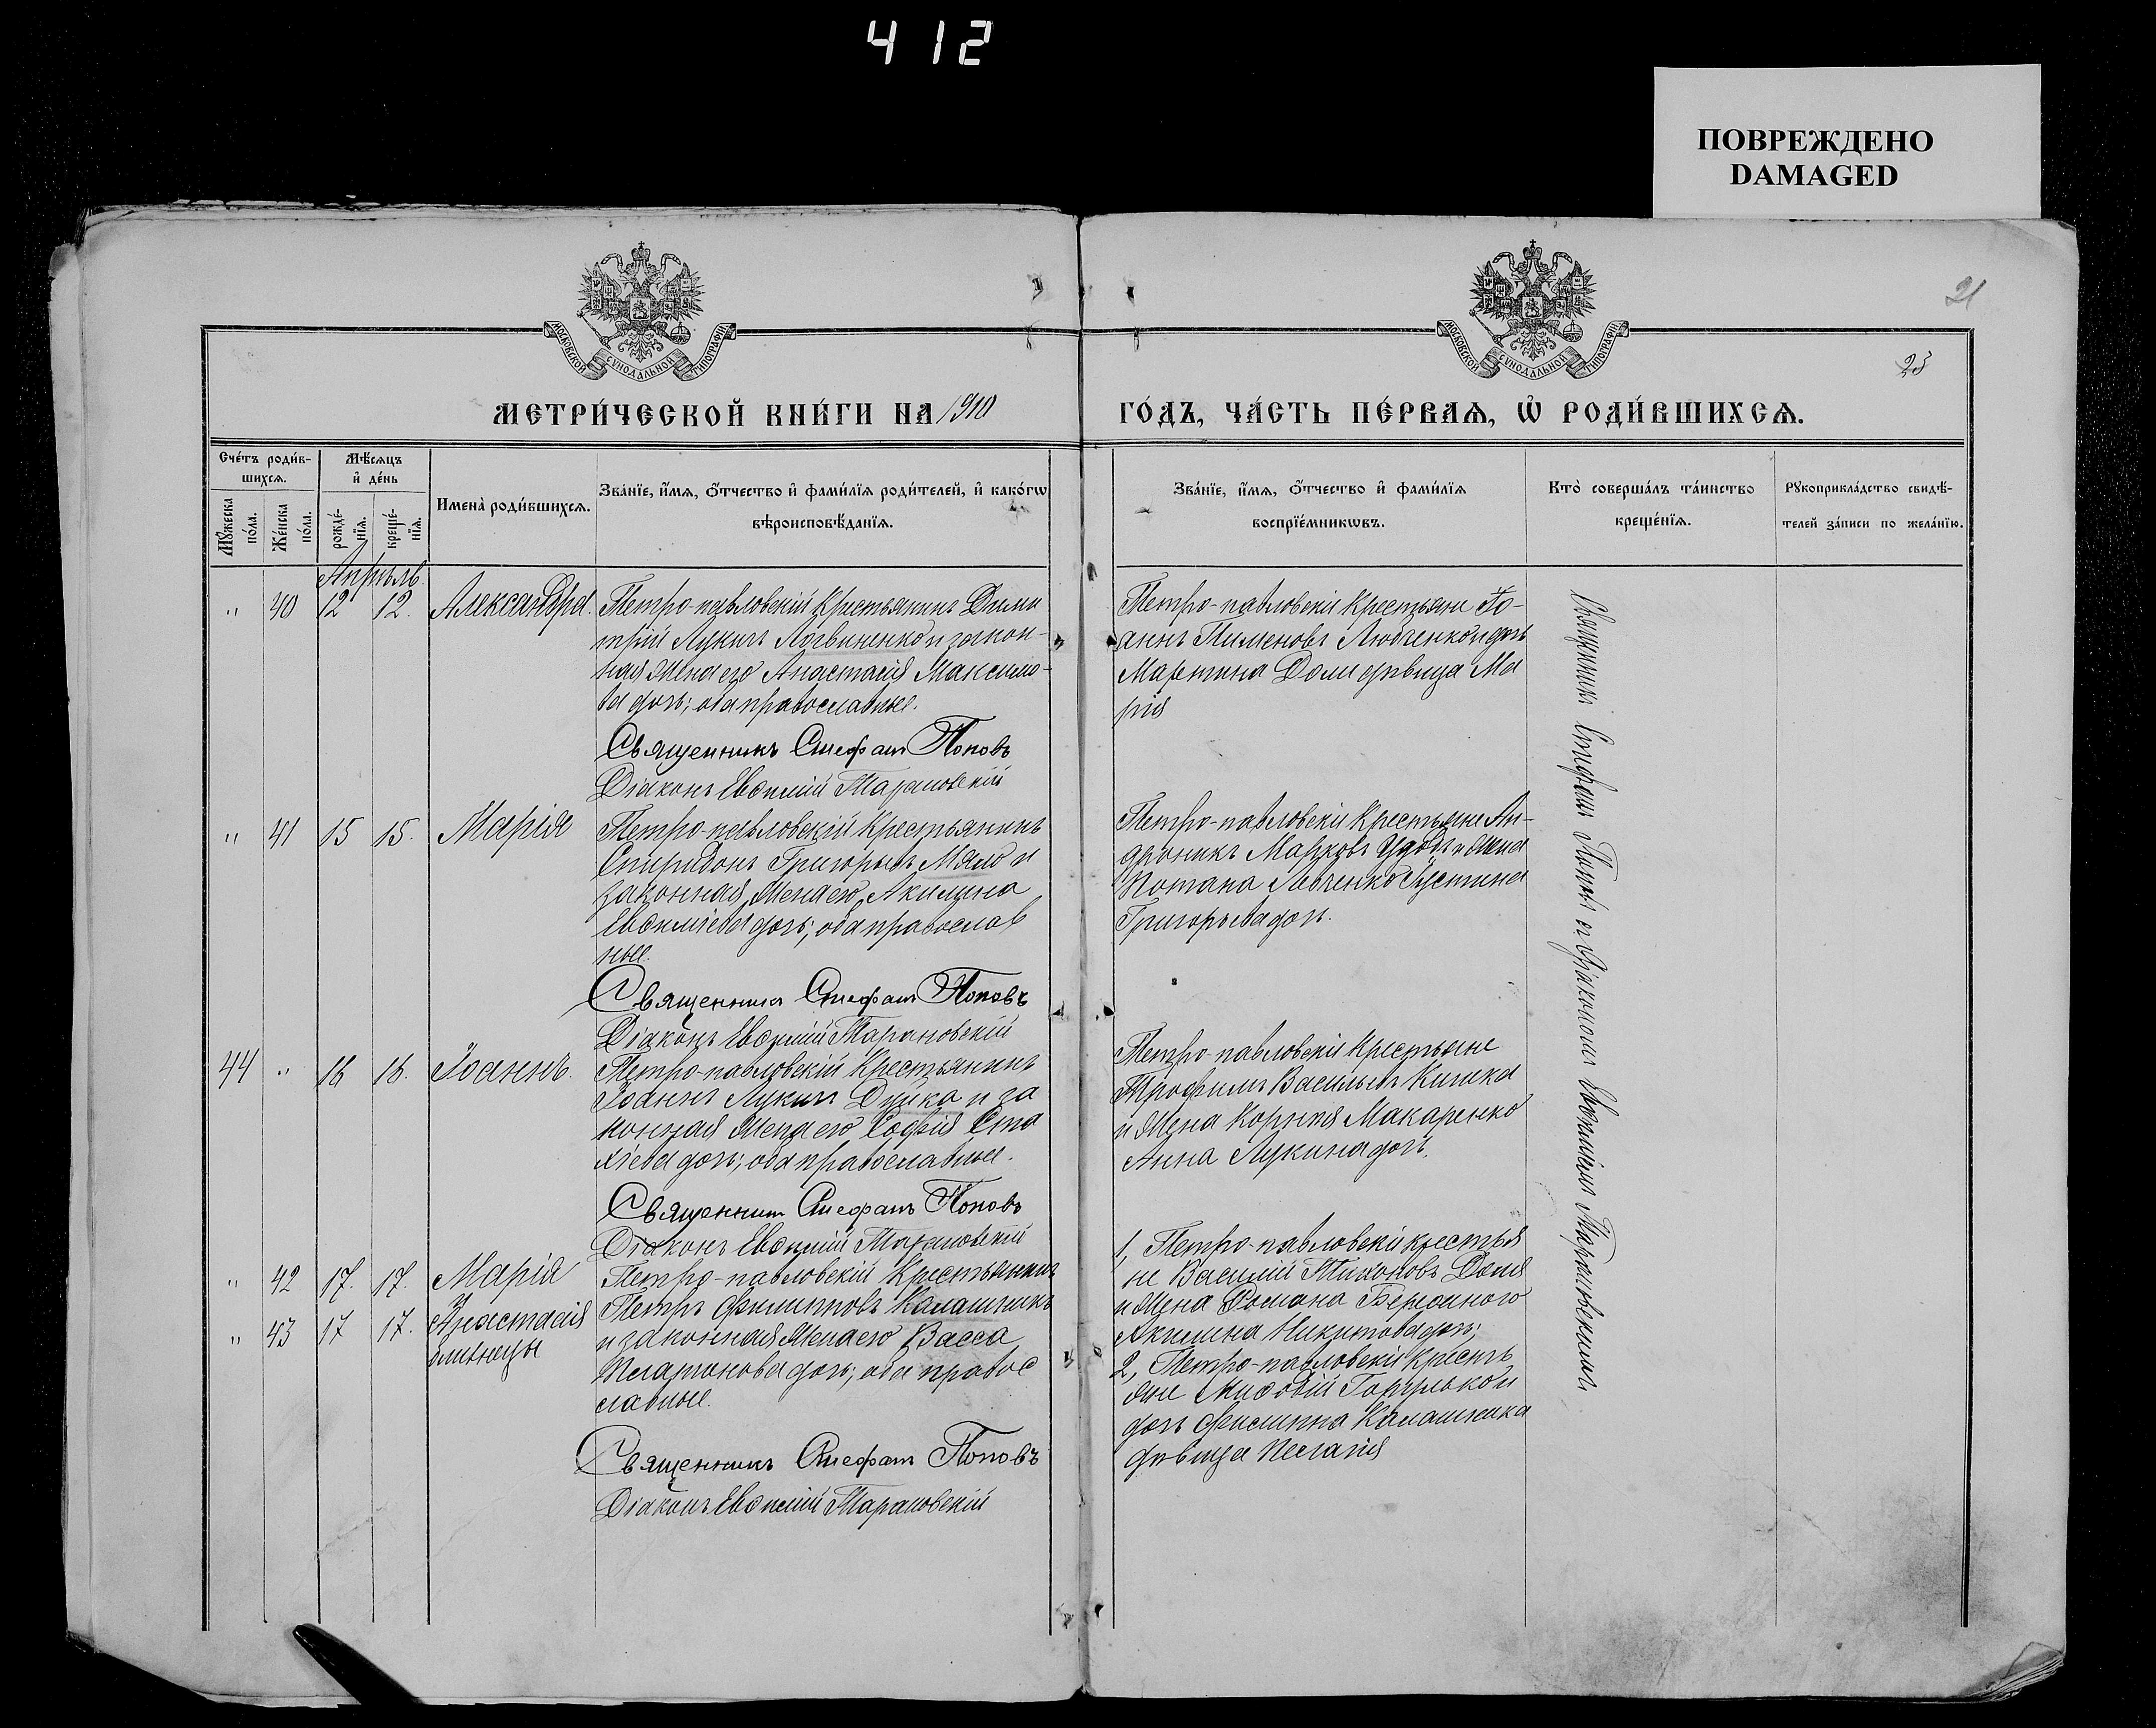 412
ПОВРЕЖДЕНО
DAMAGED
МОСКОВСКОЙ СУНОДАЛЬНОЙ ТИПОГРАФІИ
МОСКОВСКОЙ СУНОДАЛЬНОЙ ТИПОГРАФІИ
21
23
МЕТРИ́ЧЕСКОЙ КНИ́ГИ НА 1910
ГО́ДЪ, ЧА́СТЬ ПЕ́РВАѦ, Ѡ҆ РОДИ́ВШИХСѦ.
Сче́тъ роди́в-
шихсѧ.
Мꙋ́жеска по́ла.
Же́нска по́ла.
Мѣ́сѧцъ
и҆ де́нь
рожде́-
нїѧ.
креще́-
нїѧ.
Имена̀ роди́вшихсѧ.
Зва́нїе, и҆́мѧ, ѻ҆́тчество и҆ фами́лїѧ роди́телей, и҆ како́гѡ
вѣроисповѣ́данїѧ.
Зва́нїе, и҆́мѧ, ѻ҆́тчество и҆ фами́лїѧ
воспрїе́мникѡвъ.
Кто̀ соверша́лъ та́инство
креще́нїѧ.
Рꙋкоприкла́дство свидѣ́-
телей за́писи по жела́нїю.
Апрѣль.
" 40 12 12. Александра.
Петро-павловскій Крестьянинъ Дими
трій Лукинъ Логвиненко и закон-
ная жена его Анастасія Максимо-
ва дочь; оба православные.
Священникъ Стефанъ Поповъ
Діаконъ Евѳимій Тарановскій
Петро-павловскіи Крестьяне Іо-
аннъ Пименовъ Любченко и дочь
Мартина Доли дѣвица Ма
рія
" 41 15 15. Марія
Петро-павловскій Крестьянинъ
Спиридонъ Григорьевъ Мяло и
законная жена его Акилина
Евѳиміева дочь; оба православ
ные.
Священникъ Стефанъ Поповъ
Діаконъ Евѳимій Тарановскій
Петро-павловскіи Крестьяне Ан-
дроникъ Марковъ Удовъ и жена
Потапа Любченко Іустина
Григорьева дочь.
44 " 16 16. Іоаннъ.
Петро-павловскій Крестьянинъ
Іоаннъ Лукинъ Дуйко и за
конная жена его Софія Ста
хіева дочь; оба православные.
Священникъ Стефанъ Поповъ
Діаконъ Евѳимій Тарановскій
Петро-павловскіи Крестьяне
Трофимъ Васильевъ Кишка
и жена Корнія Макаренко
Анна Лукина дочь.
" 42 17. 17. Марія
" 43 17 17. Анастасія
близнецы
Петро-павловскій Крестьянинъ
Петръ Филипповъ Калашникъ
и законная жена его Васса
Платонова дочь; оба правос
славные.
Священникъ Стефанъ Поповъ
Діаконъ Евѳимій Тарановскій
1, Петро-павловскіи крестья
не Василій Тихоновъ Доля
и жена Романа Бережного
Акилина Никитова дочь;
2, Петро-павловскіи Кресть
яне Миѳодій Горулько и
дочь Филиппа Калашника
дѣвица Пелагія
Священникъ Стефанъ Поповъ съ Діакономъ Евѳиміемъ Тарановскимъ.